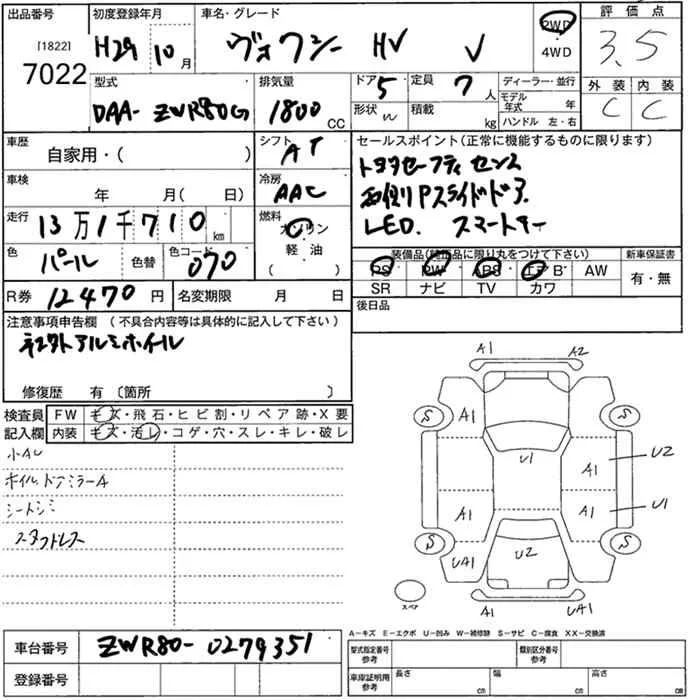 出品番号 初度登録年月 車名・グレード 評価点
[1822]
7022
H29 10月
ヴォクシー HV V
2WD
4WD
3.5
型式 排気量 ドア 5 定員 7人 ディーラー・並行
外装 内装
DAA- ZWR80G
1800 CC
形状 積載 kg
モデル年式 年
ハンドル 左・右
C C
車歴
自家用・( )
シフト AT
セールスポイント(正常に機能するものに限ります)
車検 年 月(日)
冷房 AAC
トヨタセーフティセンス
両側Pスライドドア.
LED. スマートキー
走行 13万1千710km
燃料 ガソリン
軽油
( )
色 パール 色替 色コード 070
装備品(純正品に限り丸をつけて下さい) 新車保証書
PS PW ABS エアB AW
有・無
SR ナビ TV カワ
R券 12470円 名変期限 月 日
後日品
注意事項申告欄(不具合内容等は具体的に記入して下さい)
社外アルミホイール
修復歴 有〔箇所 〕
検査員 FW キズ・飛石・ヒビ割・リペア跡・X要
記入欄 内装 キズ・汚レ・コゲ・穴・スレ・キレ・破レ
小AU
ホイル、ドアミラーA
シートシミ
スタッドレス
A1 A2
S A1 S
U1 A1 U2
A1 A1 U1
S UA1 U2 S
A1 UA1
スペア
車台番号 ZWR80-0279351
登録番号
A-キズ E-エクボ U-凹み W-補修跡 S-サビ C-腐食 XX-交換済
型式指定番号 参考 類別区分番号 参考
車庫証明用 参考 長さ cm 幅 cm 高さ cm